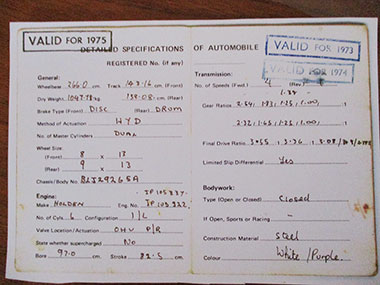 VALID FOR 1975
DETAILED SPECIFICATIONS OF AUTOMOBILE
REGISTERED No. (if any)
General:
Wheelbase 266.0 cm Track 143.16 cm. (Front)
Dry Weight kg. 138.08 cm. (Rear)
Brake Type (Front) DISC (Rear) DRUM
Method of Actuation HYD
No. of Master Cylinders DUAL
Wheel Size
(Front) 8 x 13
(Rear) 9 x 13
Chassis/Body No.
Engine:
Make HOLDEN Eng. No.
No. of Cyls. 6 Configuration I/L
Valve Location/Actuation OHV P/R
State whether supercharged No
Bore 97.0 cm Stroke 82.5 cm.
VALID FOR 1973
VALID FOR 1974
Transmission:
No. of Speeds (Fwd.) 4 (Rear)
Gear Ratios
Final Drive Ratio 3.55 : 3.36
Limited Slip Differential Yes
Bodywork:
Type (Open or Closed) Closed
If Open, Sports or Racing –
Construction Material Steel
Colour White/Purple.